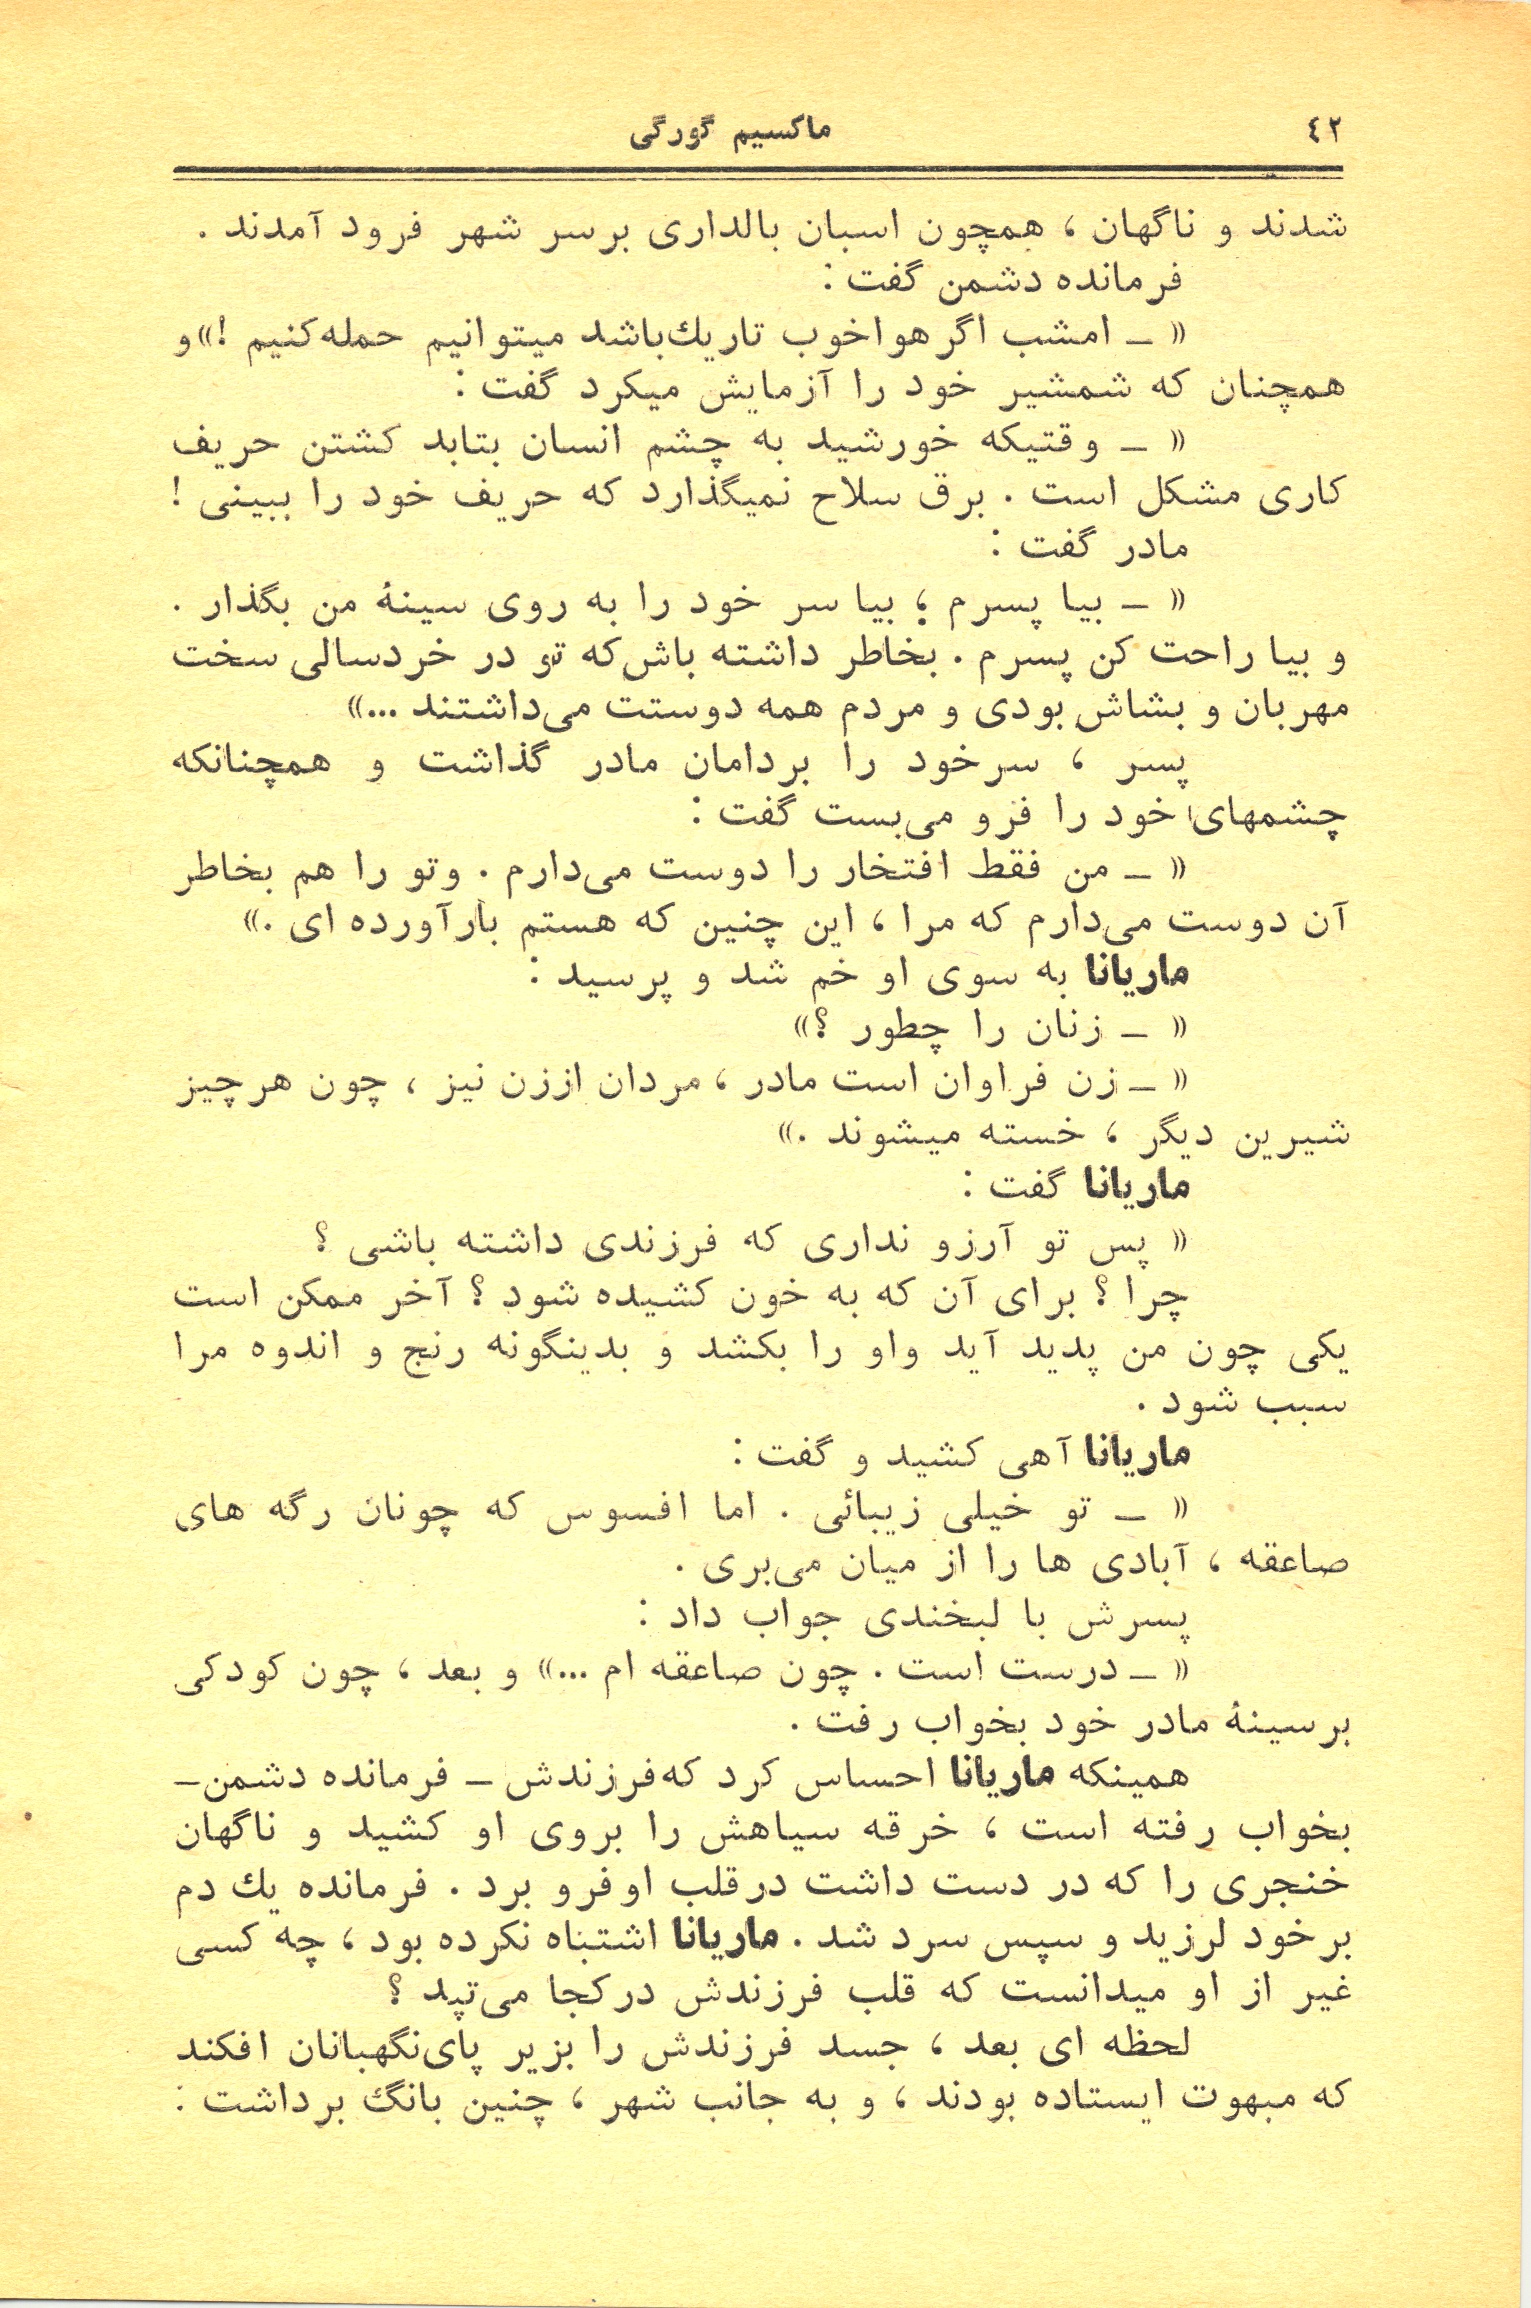 ٤٢
ماکسیم گورگی
شدند و ناگهان ، همچون اسبان بالداری برسر شهر فرود آمدند .
فرمانده دشمن گفت :
« ـ امشب اگر هوا خوب تاریك باشد میتوانیم حمله کنیم !» و
همچنان که شمشیر خود را آزمایش میکرد گفت :
« ـ وقتیکه خورشید به چشم انسان بتابد کشتن حریف
کاری مشکل است . برق سلاح نمیگذارد که حریف خود را ببینی !
مادر گفت :
« ـ بیا پسرم ؛ بیا سر خود را به روی سینهٔ من بگذار .
و بیا راحت کن پسرم . بخاطر داشته باش که تو در خردسالی سخت
مهربان و بشاش بودی و مردم همه دوستت می‌داشتند ...»
پسر ، سرخود را بردامان مادر گذاشت و همچنانکه
چشمهای خود را فرو می‌بست گفت :
« ـ من فقط افتخار را دوست می‌دارم . و تو را هم بخاطر
آن دوست می‌دارم که مرا ، این چنین که هستم بارآورده ای .»
ماریانا به سوی او خم شد و پرسید :
« ـ زنان را چطور ؟»
« ـ زن فراوان است مادر ، مردان اززن نیز ، چون هرچیز
شیرین دیگر ، خسته میشوند .»
ماریانا گفت :
« پس تو آرزو نداری که فرزندی داشته باشی ؟
چرا ؟ برای آن که به خون کشیده شود ؟ آخر ممکن است
یکی چون من پدید آید واو را بکشد و بدینگونه رنج و اندوه مرا
سبب شود .
ماریانا آهی کشید و گفت :
« ـ تو خیلی زیبائی . اما افسوس که چونان رگه های
صاعقه ، آبادی ها را از میان می‌بری .
پسرش با لبخندی جواب داد :
« ـ درست است . چون صاعقه ام ...» و بعد ، چون کودکی
برسینهٔ مادر خود بخواب رفت .
همینکه ماریانا احساس کرد که فرزندش ـ فرمانده دشمن ـ
بخواب رفته است ، خرقه سیاهش را بروی او کشید و ناگهان
خنجری را که در دست داشت درقلب او فرو برد . فرمانده یك دم
برخود لرزید و سپس سرد شد . ماریانا اشتباه نکرده بود ، چه کسی
غیر از او میدانست که قلب فرزندش درکجا می‌تپد ؟
لحظه ای بعد ، جسد فرزندش را بزیر پای نگهبانان افکند
که مبهوت ایستاده بودند ، و به جانب شهر ، چنین بانگ برداشت :